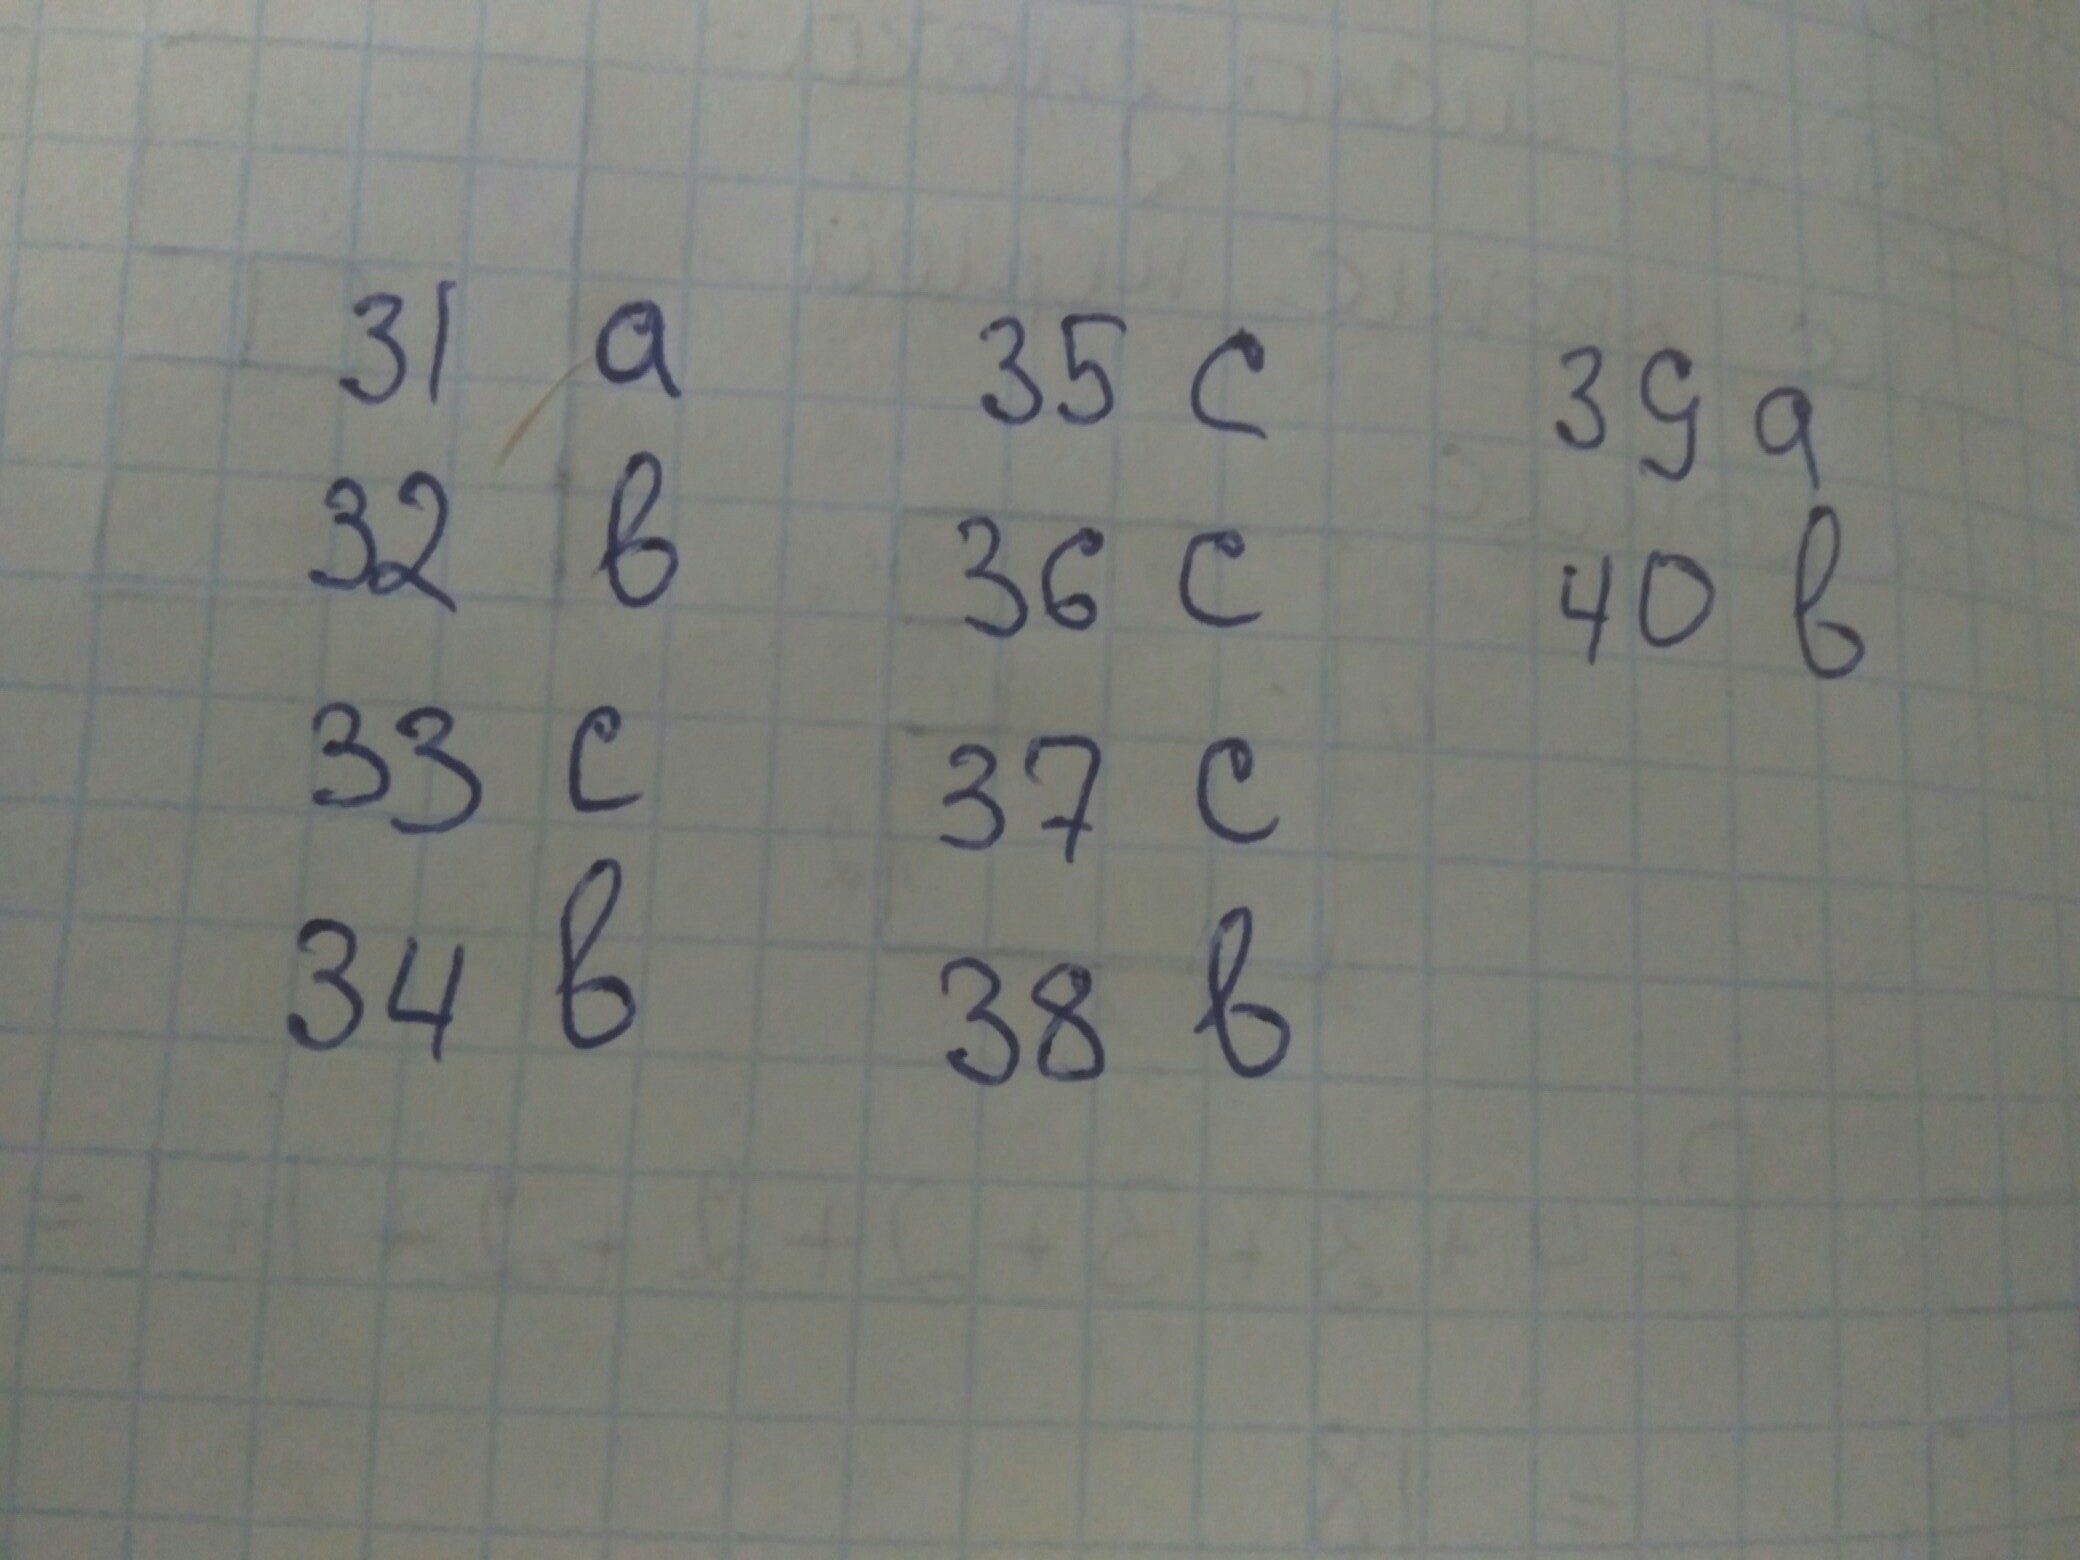 31 a
32 в
33 c
34 в
35 c
36 c
37 c
38 в
39 a
40 в